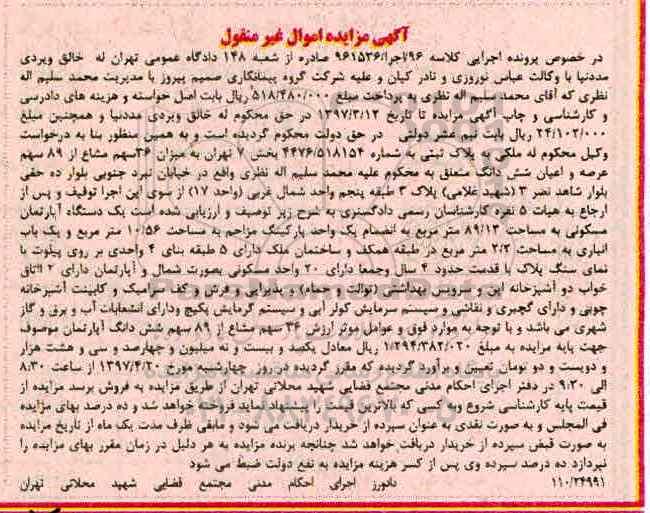 آگهی مزایده اموال غیر منقول
در خصوص پرونده اجرایی کلاسه ۹۶/اجرا/۹۶۱۵۳۶ صادره از شعبه ۱۴۸ دادگاه عمومی تهران له خالق ویردی
مددنیا با وکالت عباس نوروزی و نادر کیان و علیه شرکت گروه پیمانکاری صمیم پیروز با مدیریت محمد سلیم اله
نظری که آقای محمد سلیم اله نظری به پرداخت مبلغ ۵۱۸/۴۸۰/۰۰۰ ریال بابت اصل خواسته و هزینه های دادرسی
و کارشناسی و چاپ آگهی مزایده تا تاریخ ۱۳۹۷/۳/۱۲ در حق محکوم له خالق ویردی مددنیا و همچنین مبلغ
۲۴/۱۰۲/۰۰۰ ریال بابت نیم عشر دولتی در حق دولت محکوم گردیده است و به همین منظور بنا به درخواست
وکیل محکوم له ملکی به پلاک ثبتی به شماره ۴۴۷۶/۵۱۸۱۵۴ بخش ۷ تهران به میزان ۳۶سهم مشاع از ۸۹ سهم
عرصه و اعیان شش دانگ متعلق به محکوم علیه محمد سلیم اله نظری واقع در خیابان نبرد جنوبی بلوار ده حقی
بلوار شاهد نصر ۳ (شهید غلامی) پلاک ۳ طبقه پنجم واحد شمال غربی (واحد ۱۷) از سوی این اجرا توقیف و پس از
ارجاع به هیات ۵ نفره کارشناسان رسمی دادگستری به شرح زیر توصیف و ارزیابی شده است یک دستگاه آپارتمان
مسکونی به مساحت ۸۹/۱۳ متر مربع به انضمام یک واحد پارکینگ مزاحم به مساحت ۱۰/۵۶ متر مربع و یک باب
انباری به مساحت ۲/۲ متر مربع در طبقه همکف و ساختمان ملک دارای ۵ طبقه بنای ۴ واحدی بر روی پیلوت با
نمای سنگ پلاک با قدمت حدود ۴ سال وجمعا دارای ۲۰ واحد مسکونی بصورت شمال و آپارتمان دارای ۲ اتاق
خواب دو آشپزخانه اپن و سرویس بهداشتی (توالت و حمام) و پذیرایی و فرش و کف سرامیک و کابینت آشپزخانه
چوبی و دارای گچبری و نقاشی و سیستم سرمایش کولر آبی و سیستم گرمایش پکیج ودارای انشعابات آب و برق و گاز
شهری می باشد و با توجه به موارد فوق و عوامل موثر ارزش ۳۶ سهم مشاع از ۸۹ سهم شش دانگ آپارتمان موصوف
جهت پایه مزایده به مبلغ ۱/۲۹۴/۳۸۲/۰۲۰ ریال معادل یکصد و بیست و نه میلیون و چهارصد و سی و هشت هزار
و دویست و دو تومان تعیین و برآورد گردیده که مقرر گردیده درروز چهارشنبه مورخ ۱۳۹۷/۴/۲۰ از ساعت ۸:۳۰
الی ۹:۳۰ در دفتر اجرای احکام مدنی مجتمع قضایی شهید محلاتی تهران از طریق مزایده به فروش برسد مزایده از
قیمت پایه کارشناسی شروع وبه کسی که بالاترین قیمت را پیشنهاد نماید فروخته خواهد شد و ده درصد بهای مزایده
فی المجلس و به صورت نقدی به عنوان سپرده از خریدار دریافت می شود و مابقی ظرف مدت یک ماه از تاریخ مزایده
به صورت قبض سپرده از خریدار دریافت خواهد شد چنانچه برنده مزایده به هر دلیل در زمان مقرر بهای مزایده را
نپردازد ده درصد سپرده وی پس از کسر هزینه مزایده به نفع دولت ضبط می شود
۱۱۰/۲۴۹۹۱ دادورز اجرای احکام مدنی مجتمع قضایی شهید محلاتی تهران